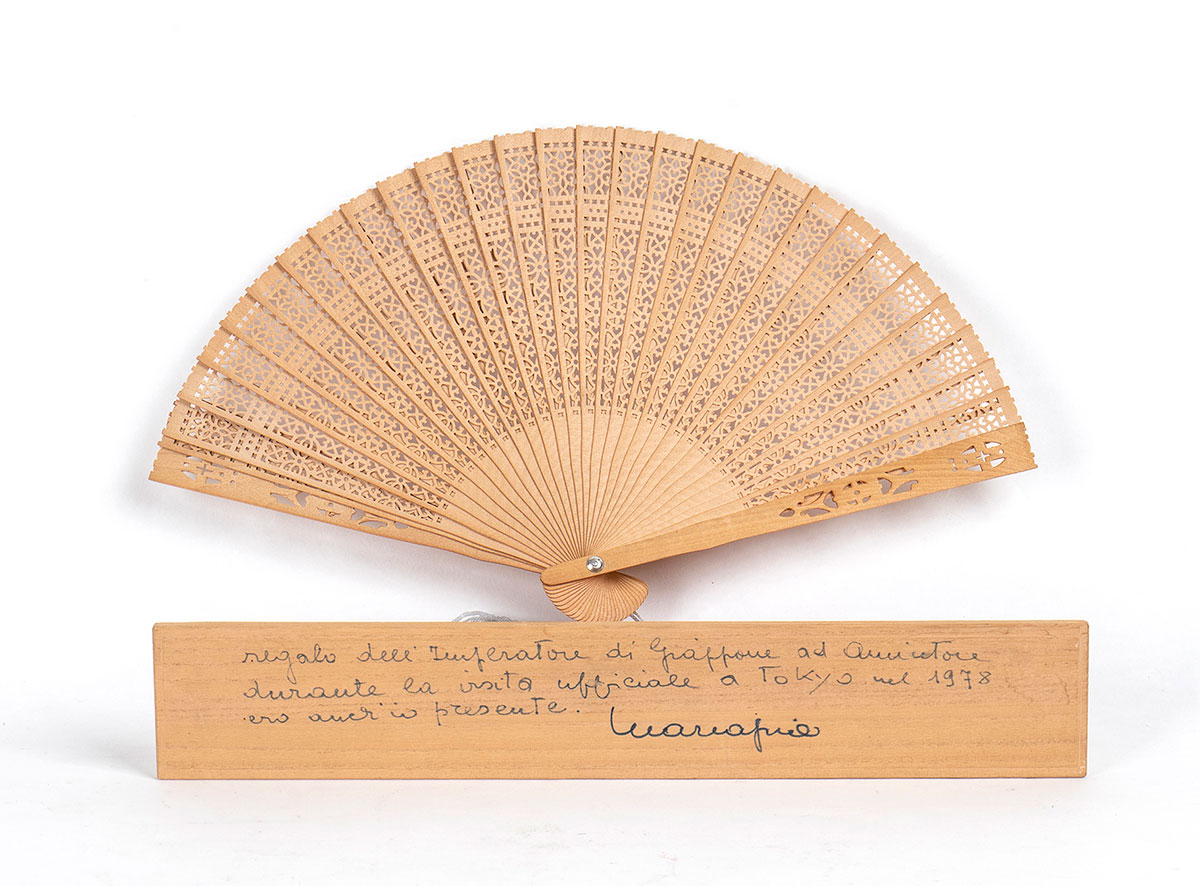 regalo dell'Imperatore di Giappone ad Amintore
durante la visita ufficiale a Tokyo nel 1978
ero anch'io presente. Mariapia